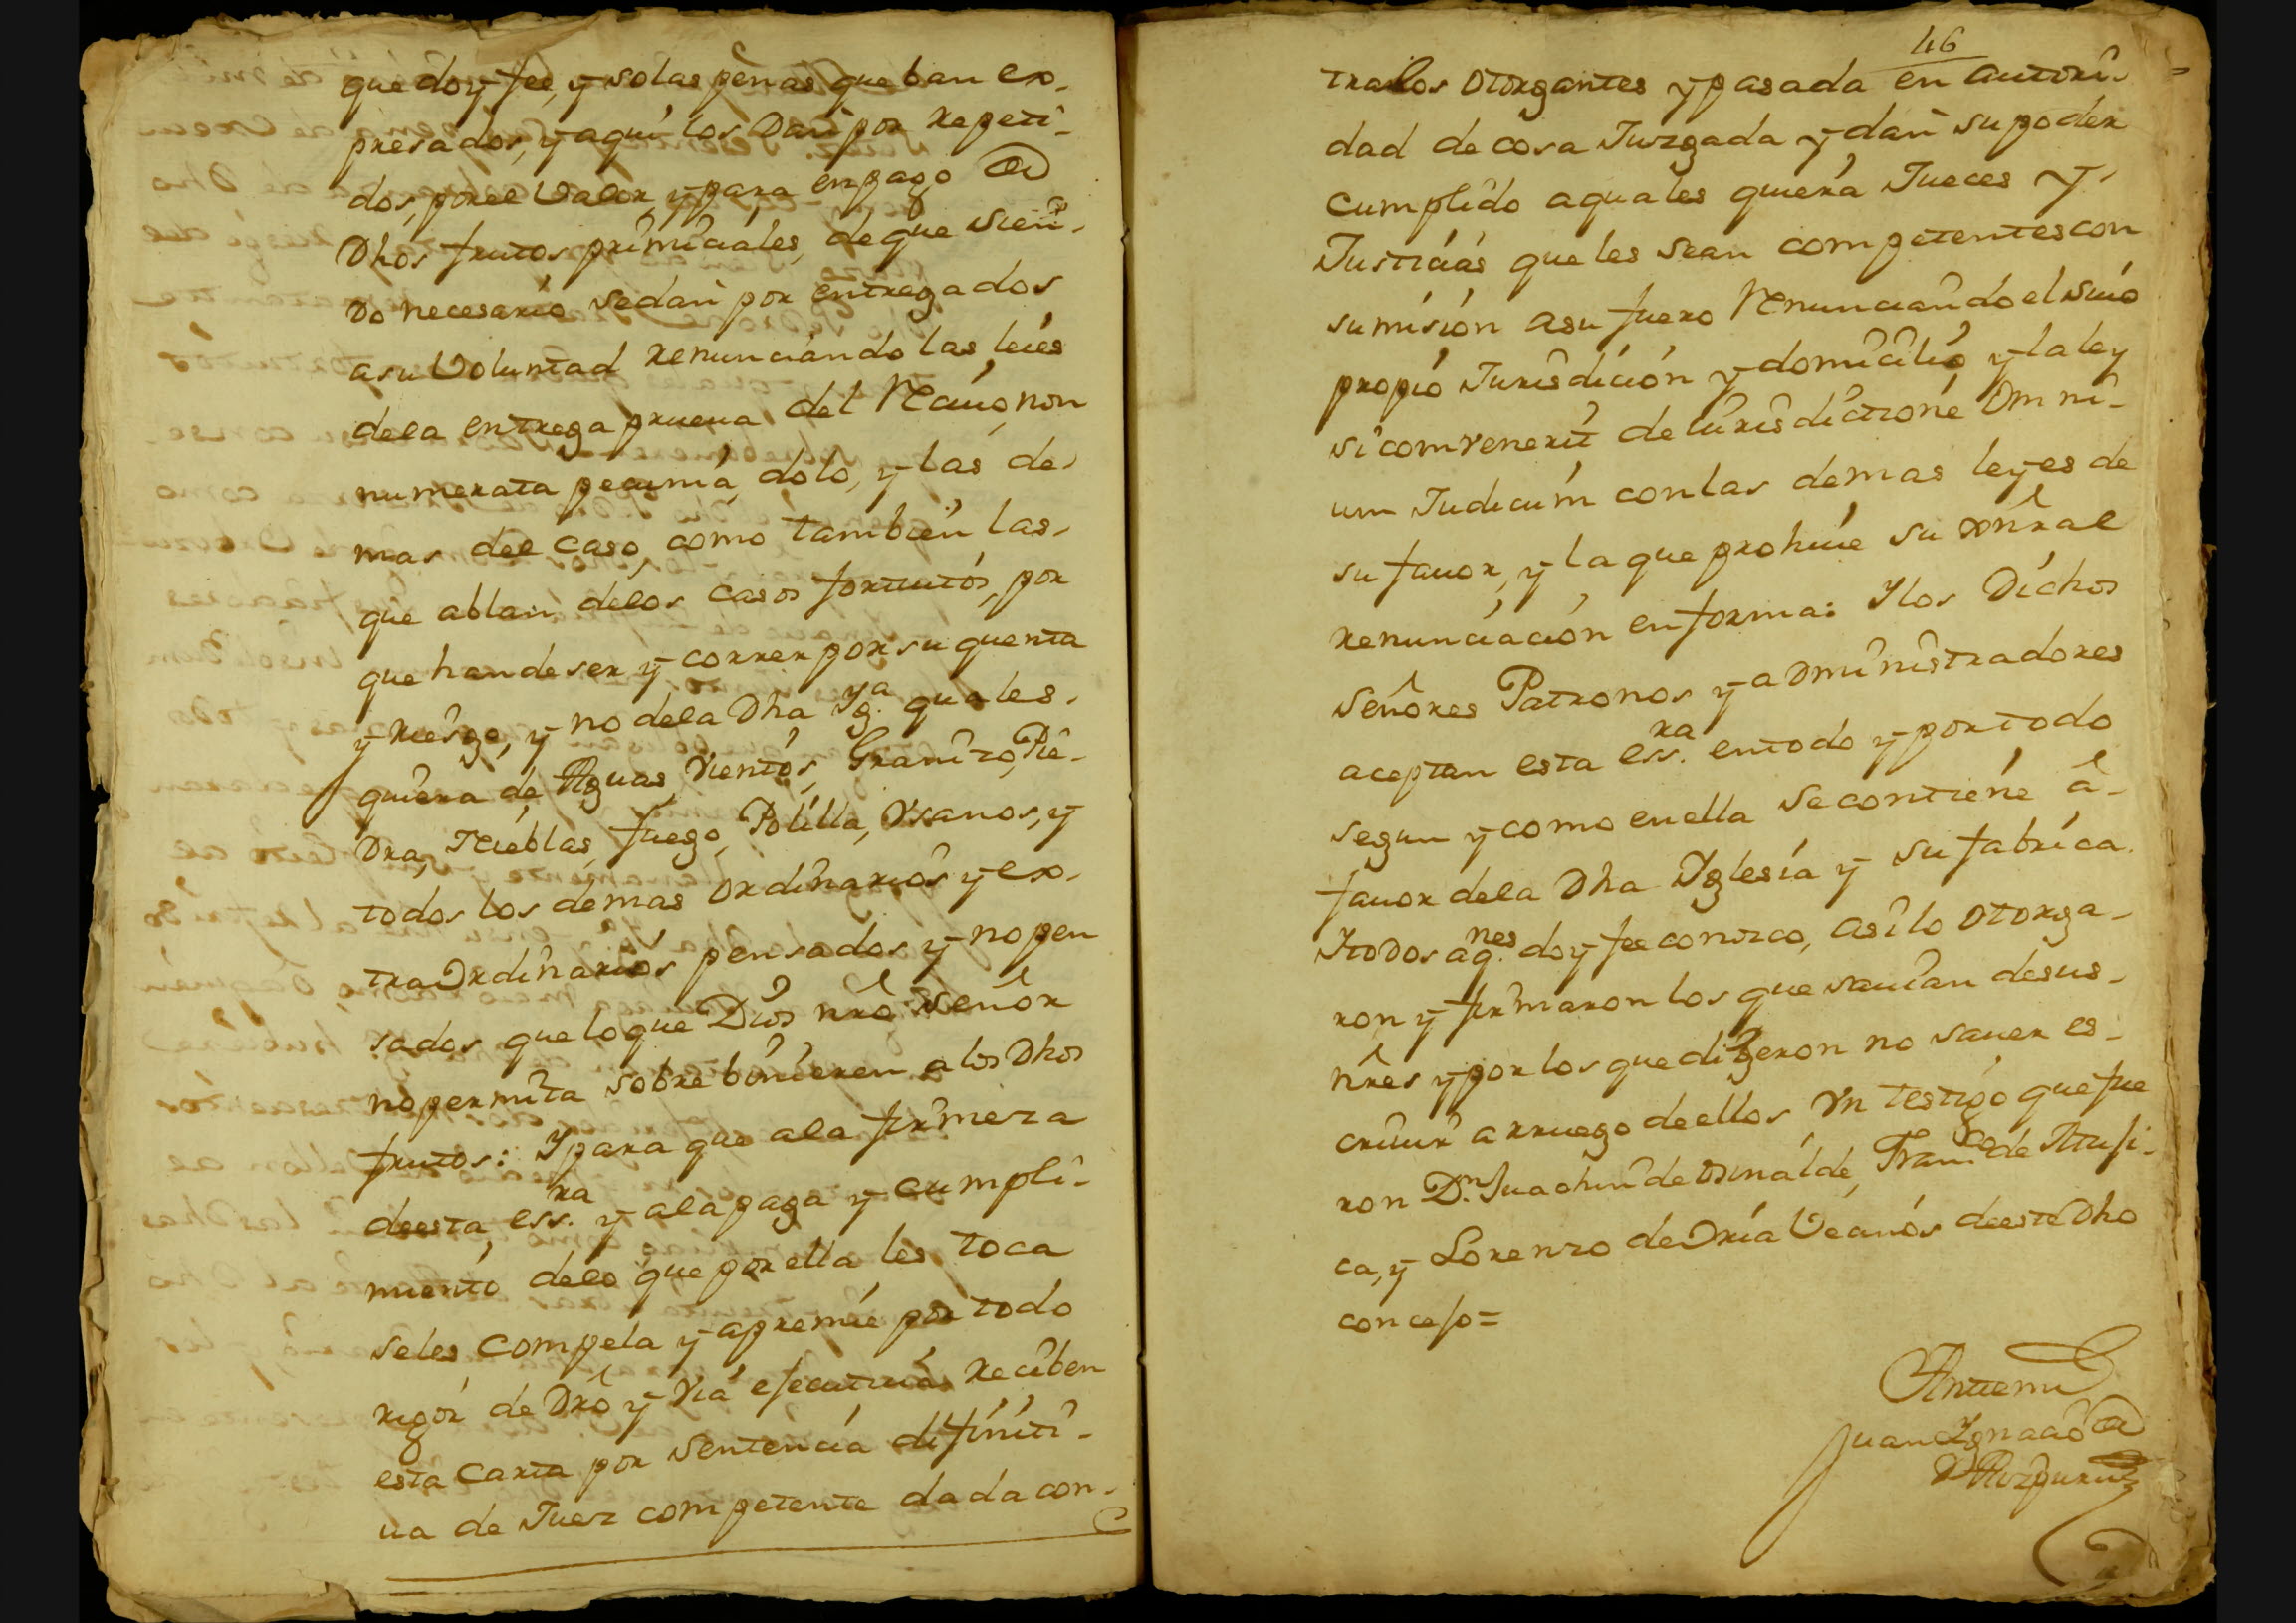 que doy fee, y solas penas que ban ex-
presados, y aqui los dan por repeti-
dos, por el valor, y para en pago de
Dhos frutos primiciales, de que sien-
do necesario se dan por entregados
a su voluntad renunciando las leies
de la entrega prueua del Reciuo, non
numerata pecunia, dolo, y las de-
mas del caso, como tambien las
que ablan de los casos fortuitos, por
que han de ser y correr por su quenta
y riesgo, y no de la Dha Yga. quales-
quiera de Aguas, Vientos, Granizo, Pie-
dra, Nieblas, fuego, Polilla, Vsanos, y
todos los demas ordinarios y ex-
traordinarios pensados y no pen
sados que lo que Dios nro Señor
no permita sobrebinieren a los Dhos
frutos: Y para que a la firmeza
de esta, essra. y a la paga y cumpli-
miento de lo que por ella les toca
se les compela y apremie por todo
rigor de Dro y Via executiua, reciben
esta Carta por sentencia difiniti-
ua de Juez competente dada con-
46
tra los otorgantes y pasada en autori-
dad de cosa Juzgada y dan su poder
cumplido a quales quiera Jueces y
Justicias que les sean competentes con
sumision a su fuero Renunciando el suio
propio Jurisdicion y domicilio, y la ley
si comvenerit de iurisdictione omni-
um Judicum con las demas leyes de
su fauor, y la que prohiue su xnral
renunciacion en forma: Y los Dichos
Señores Patronos y administradores
aceptan esta essra. en todo y por todo
segun y como en ella se contiene a
fauor de la Dha Yglesia y su fabrica.
Y todos aqnes. doy fee conozco, asi lo otorga-
ron y firmaron los que sauian de sus
nres y por los que dixeron no sauer es-
criuir a rruego de ellos Vn testigo que fue
ron Dn. Juachin de Osinalde, Franco. de Atusi-
ca, y Lorenzo de Oria Vecinos de este Dho
concejo =
Antemi
Juan Ygnacio de